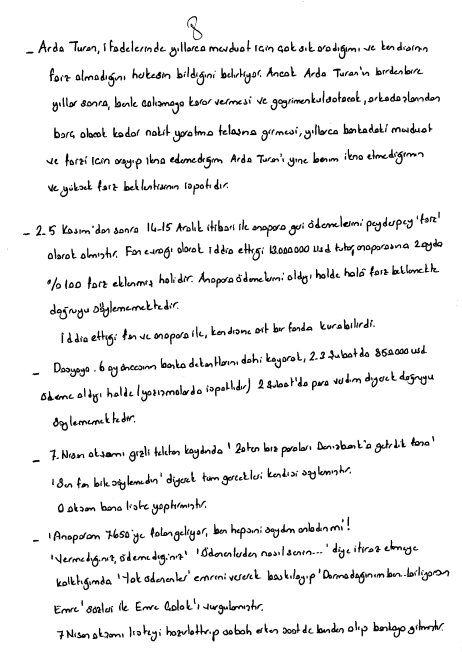 8
- Arda Turan, ifadelerinde yıllarca mevduat için çok sık aradığımı ve kendisinin
faiz almadığını herkesin bildiğini belirtiyor. Ancak Arda Turan'ın birdenbire
yıllar sonra, benle çalışmaya karar vermesi ve gayrimenkul satarak, arkadaşlarından
borç alarak kadar nakit yaratma telaşına girmesi, yıllarca bankadaki mevduat
ve faizi için arayıp ikna edemediğim Arda Turan'ı yine benim ikna etmediğimin
ve yüksek faiz beklentisinin ispatıdır.
- 2.5 Kasım'dan sonra 14-15 Aralık itibari ile anapara geri ödemelerini peyderpey 'faiz'
olarak almıştır. Fon evrağı olarak iddia ettiği 13.000.000 usd tutar anaparasına 2 ayda
%100 faiz eklenmiş halidir. Anapara ödemelerini aldığı halde hala faiz beklemekte
doğruyu söylememektedir.
İddia ettiği fon ve anapara ile, kendisine ait bir fonda kurabilirdi.
- Dosyaya. 6 ay öncesinin banka dekontlarını dahi koyarak, 2.3 Şubatda 850.000 usd
ödeme aldığı halde (yazışmalarda ispatlıdır) 2 Şubat'da para verdim diyerek doğruyu
söylememektedir.
- 7. Nisan akşamı gizli telefon kaydında 'Zaten biz paraları Denizbank'a getirdik fona'
'Sen fon bile söylemedin' diyerek tüm gerçekleri kendisi söylemiştir.
O akşam bana liste yaptırmıştır.
- 'Anaparam 7650'ye falan geliyor, ben hepsini saydım anladın mı'!
'Vermediğiniz, ödemediğiniz' 'Ödenenlerden nasıl senin...' diye itiraz etmeye
kalktığımda 'Yok ödenenler' emrini vererek baskılayıp 'Darmadağınım ben.. biliyorsun
Emre' sözleri ile Emre Çolak'ı vurgulamıştır.
7 Nisan akşamı listeyi hazırlattırıp sabah erken saatde benden alıp bankaya gitmiştir.